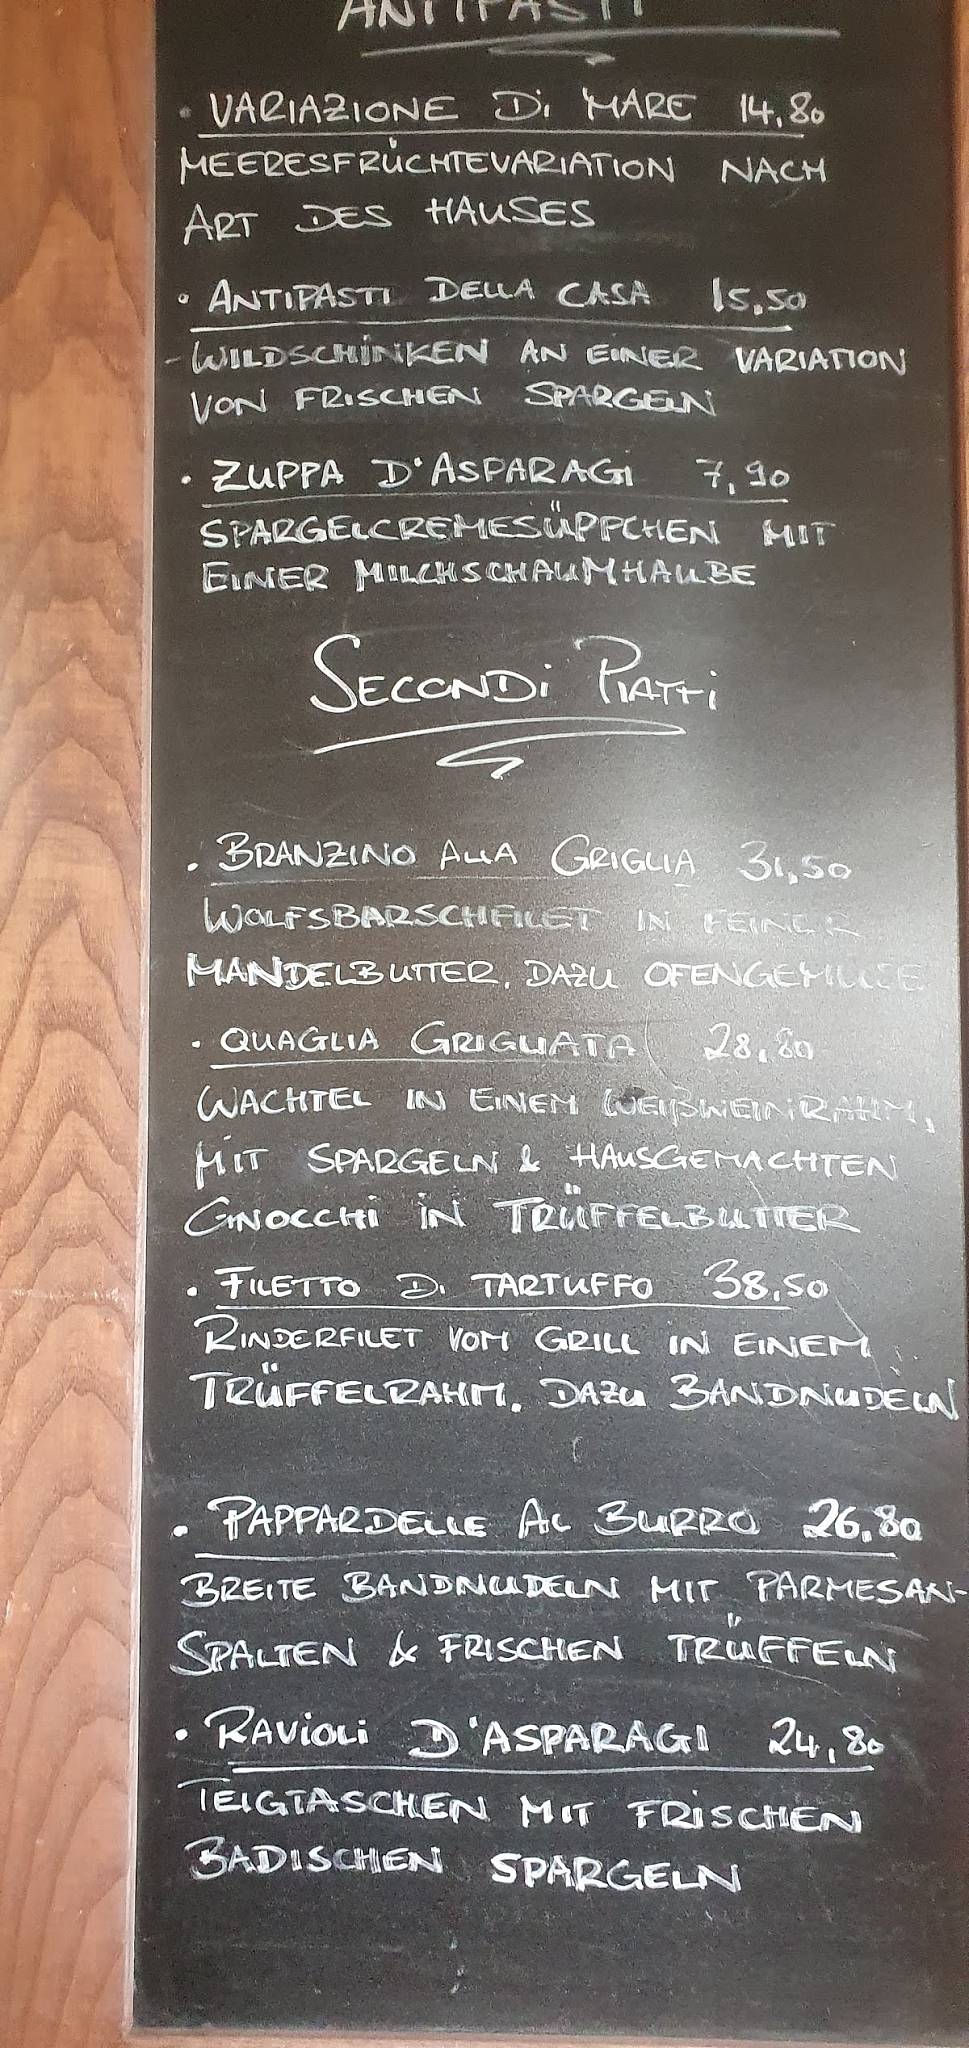 ANTIPASTI
• VARIAZIONE Di MARE 14,80
MEERESFRÜCHTEVARIATION NACH
ART DES HAUSES
• ANTIPASTI DELLA CASA 15,50
-WILDSCHINKEN AN EINER VARIATION
VON FRISCHEN SPARGELN
• ZUPPA D'ASPARAGI 7,90
SPARGELCREMESÜPPCHEN MIT
EINER MILCHSCHAUMHAUBE
SECONDi PIATTi
• BRANZINO ALLA GRIGLIA 31,50
WOLFSBARSCHFILET IN FEINER
MANDELBUTTER. DAZU OFENGEMÜSE
• QUAGLIA GRIGLIATA 28,80
WACHTEL IN EINEM WEIßWEINRAHM,
MIT SPARGELN & HAUSGEMACHTEN
GNOCCHI IN TRÜFFELBUTTER
• FILETTO Di TARTUFFO 38,50
RINDERFILET VOM GRILL IN EINEM
TRÜFFELRAHM. DAZU BANDNUDELN
• PAPPARDELLE AL BURRO 26,80
BREITE BANDNUDELN MIT PARMESAN-
SPALTEN & FRISCHEN TRÜFFELN
• RAVIOLI D'ASPARAGI 24,80
TEIGTASCHEN MIT FRISCHEN
BADISCHEN SPARGELN